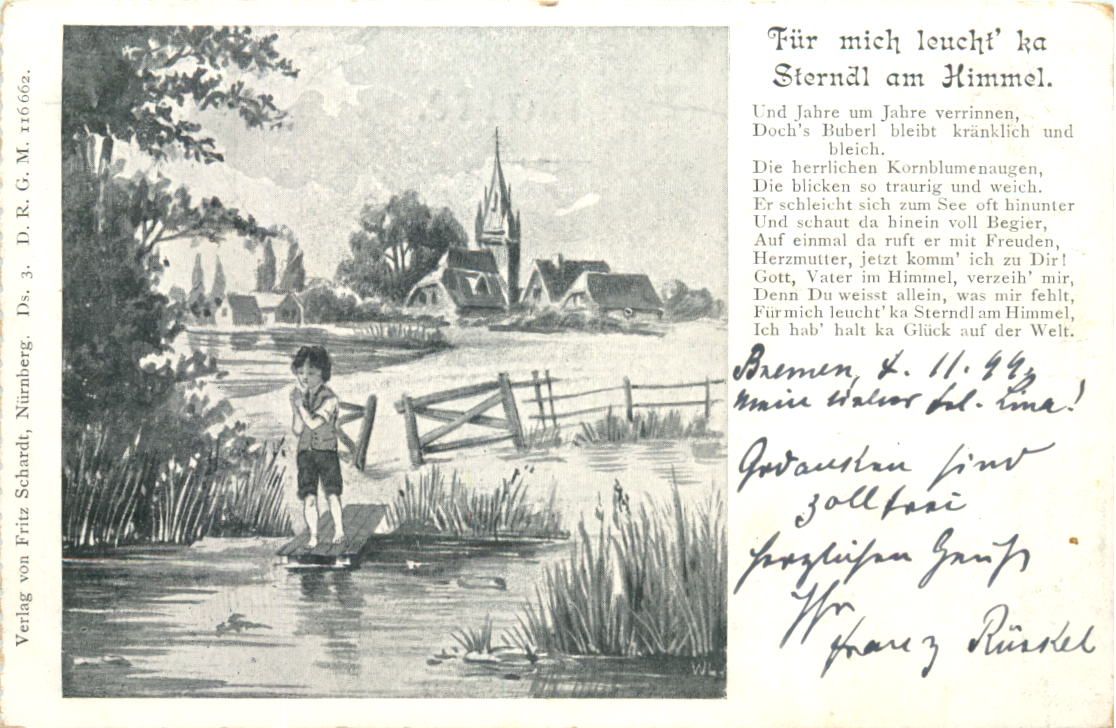 Für mich leucht' ka
Sterndl am Himmel.
Und Jahre um Jahre verrinnen,
Doch's Buberl bleibt kränklich und
bleich.
Die herrlichen Kornblumenaugen,
Die blicken so traurig und weich.
Er schleicht sich zum See oft hinunter
Und schaut da hinein voll Begier,
Auf einmal da ruft er mit Freuden,
Herzmutter, jetzt komm' ich zu Dir!
Gott, Vater im Himmel, verzeih' mir,
Denn Du weisst allein, was mir fehlt,
Für mich leucht' ka Sterndl am Himmel,
Ich hab' halt ka Glück auf der Welt.
Bremen, 4. 11. 99.
Mein liebes Frl. Lina!
Gedanken sind
zollfrei
Herzlichen Gruß
Ihr
Franz
Verlag von Fritz Schardt, Nürnberg. Ds. 3. D. R. G. M. 116662.